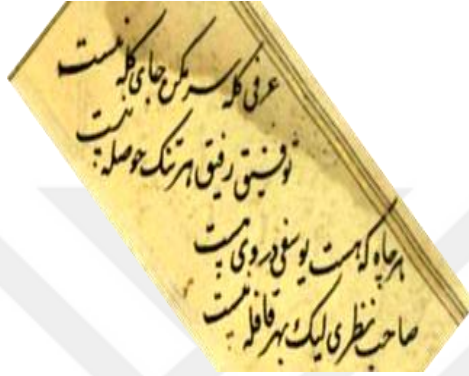 عرفی کله سر مکن جای کله نیست
توفیق رفیق هر تنک حوصله نیست
هر چاه که هست یوسفی در وی هست
صاحب نظری لیک بهر قافله نیست